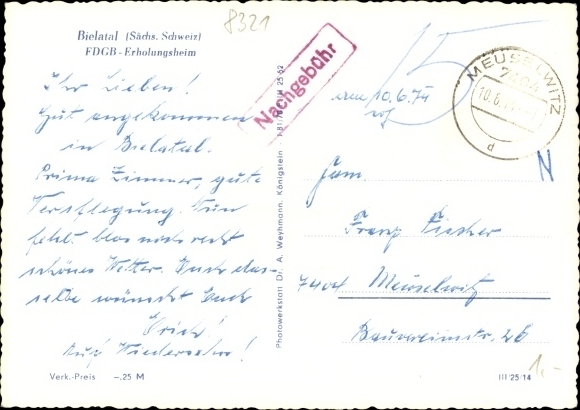 8321
Bielatal (Sächs. Schweiz)
FDGB-Erholungsheim
Nachgebühr
15
10.6.74
MEUSELWITZ
7404
10.6.
d
N
Ihr Lieben!
Gut angekommen
in Bielatal.
Prima Zimmer, gute
Verpflegung. Nun
fehlt blos noch recht
schönes Wetter. Euch das-
selbe wünscht Euch
Erich!
Auf Wiedersehn!
Fam.
Franz Fischer
7404 Meuselwitz
Bauvereinstr. 26
Photowerkstatt Dr. A. Weyhmann, Königstein
Verk.-Preis –.25 M
III 25 14
1,-